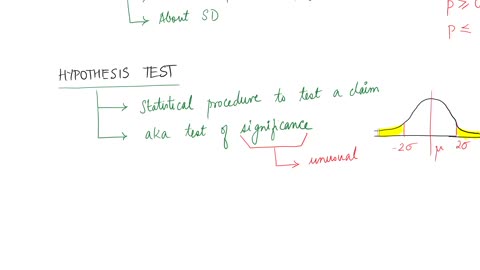 About SD
p ≥ 0
p ≤
HYPOTHESIS TEST
Statistical procedure to test a claim
aka test of significance
unusual
-2σ μ 2σ